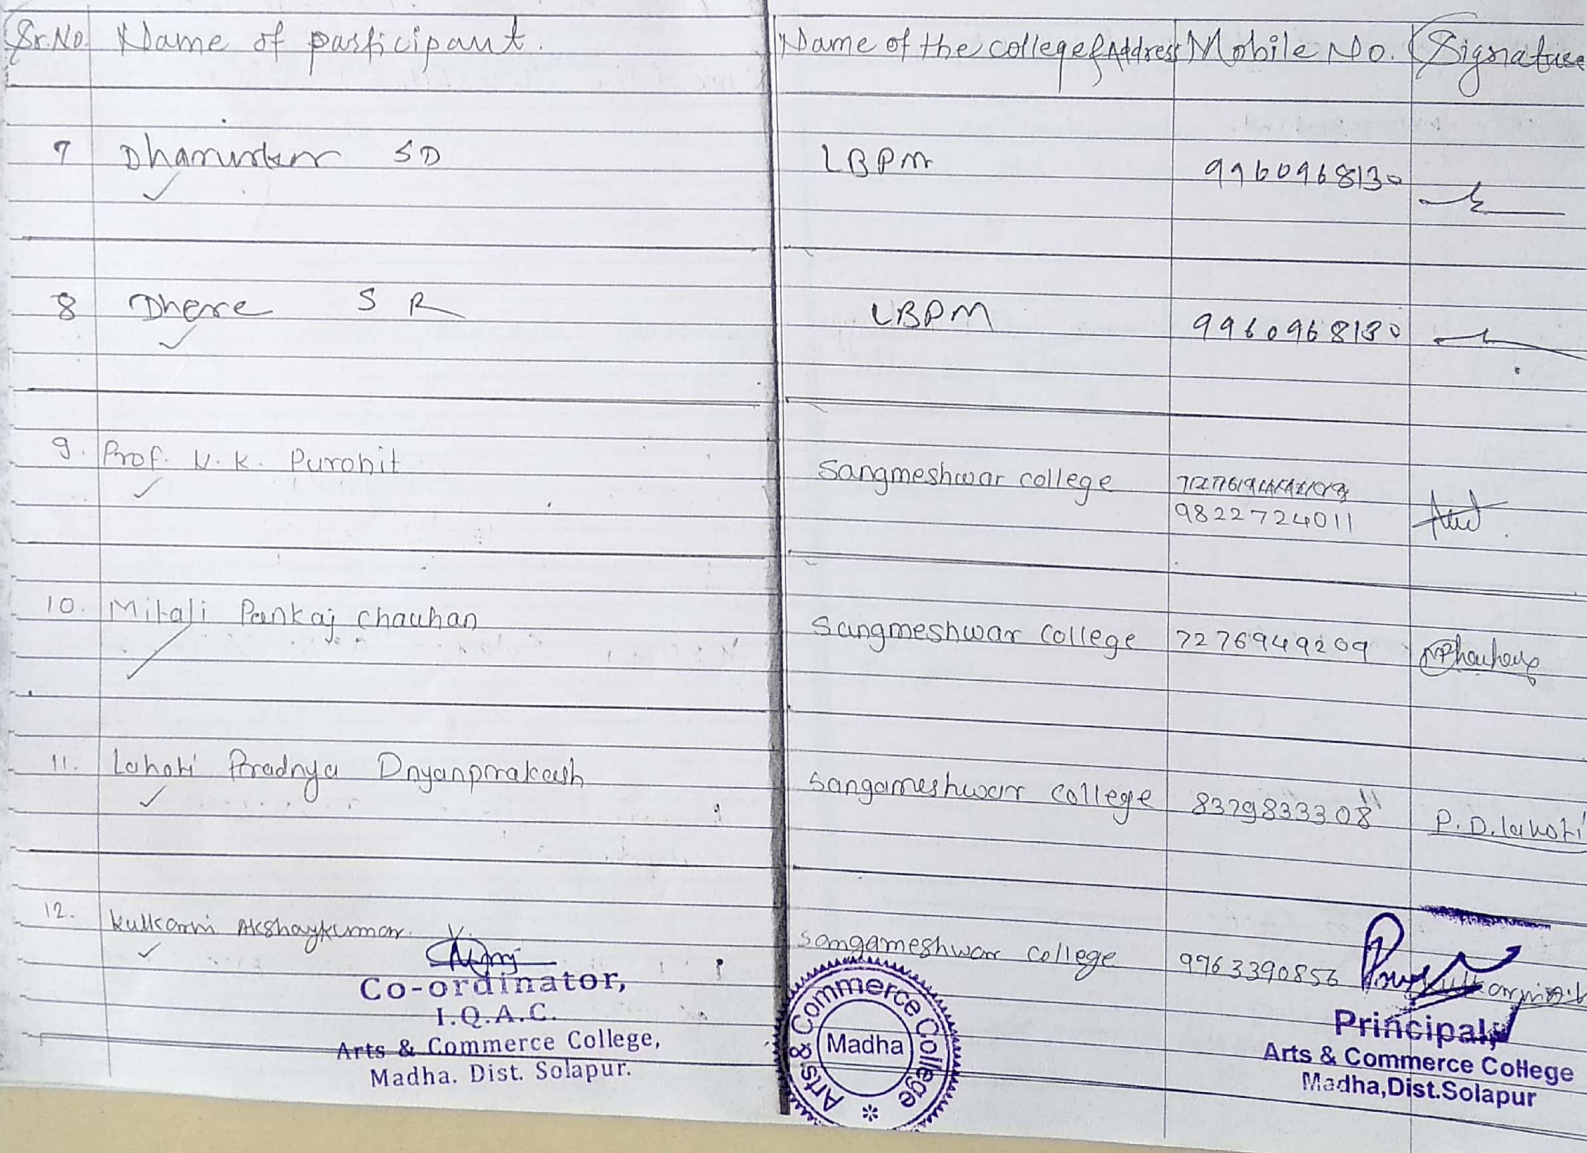 Sr.No. Name of participant. Name of the college & Address Mobile No. Signature
7 SD LBPM 9960968130
8 Dhere S R LBPM 9960968130
9. Prof. V. K. Purohit Sangmeshwar college
9822724011
10. Mitali Pankaj Chauhan Sangmeshwar college 7276949209
11. Lahoti Pradnya Dnyanprakash Sangameshwar college 8329833308 P. D. Lahoti
12. Kulkarni Akshaykumar. V. Sangameshwar college 9963390856
Co-ordinator,
I.Q.A.C.
Arts & Commerce College,
Madha. Dist. Solapur.
Arts & Commerce College
Madha
Principal,
Arts & Commerce College
Madha,Dist.Solapur